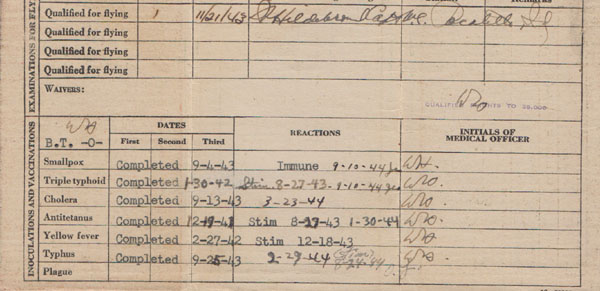 EXAMINATIONS FOR FLY
Qualified for flying 11/21/43
Qualified for flying
Qualified for flying
Qualified for flying
WAIVERS:
QUALIFIED TO 20,000
INOCULATIONS AND VACCINATIONS
B.T. -O-
DATES
First Second Third
REACTIONS
INITIALS OF MEDICAL OFFICER
Smallpox Completed 9-4-43 Immune 9-10-44
Triple typhoid Completed 1-30-42 Stim 8-27-43 9-10-44
Cholera Completed 9-13-43 3-23-44
Antitetanus Completed Stim 8-27-43 1-30-44
Yellow fever Completed 2-27-42 Stim 12-18-43
Typhus Completed 9-25-43 2-29-44
Plague